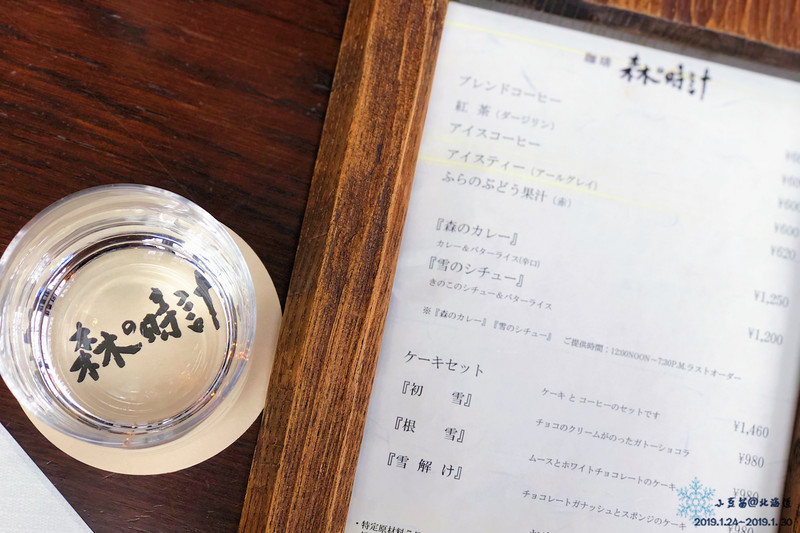 珈琲 森の時計
ブレンドコーヒー
紅 茶（ダージリン）
アイスコーヒー
アイスティー（アールグレイ） ¥600
ふらのぶどう果汁（赤） ¥620
『森のカレー』
カレー＆バターライス(辛口) ¥1,250
『雪のシチュー』
きのこのシチュー＆バターライス ¥1,200
※『森のカレー』『雪のシチュー』 ご提供時間：12:00NOON～7:30P.M.ラストオーダー
ケーキセット ケーキ と コーヒーのセットです ¥1,460
『初 雪』 チョコのクリームがのったガトーショコラ ¥980
『根 雪』 ムースとホワイトチョコレートのケーキ ¥980
『雪 解 け』 チョコレートガナッシュとスポンジのケーキ ¥980
・特定原材料
森の時計
小豆苗@北海道
2019.1.24~2019.1.30